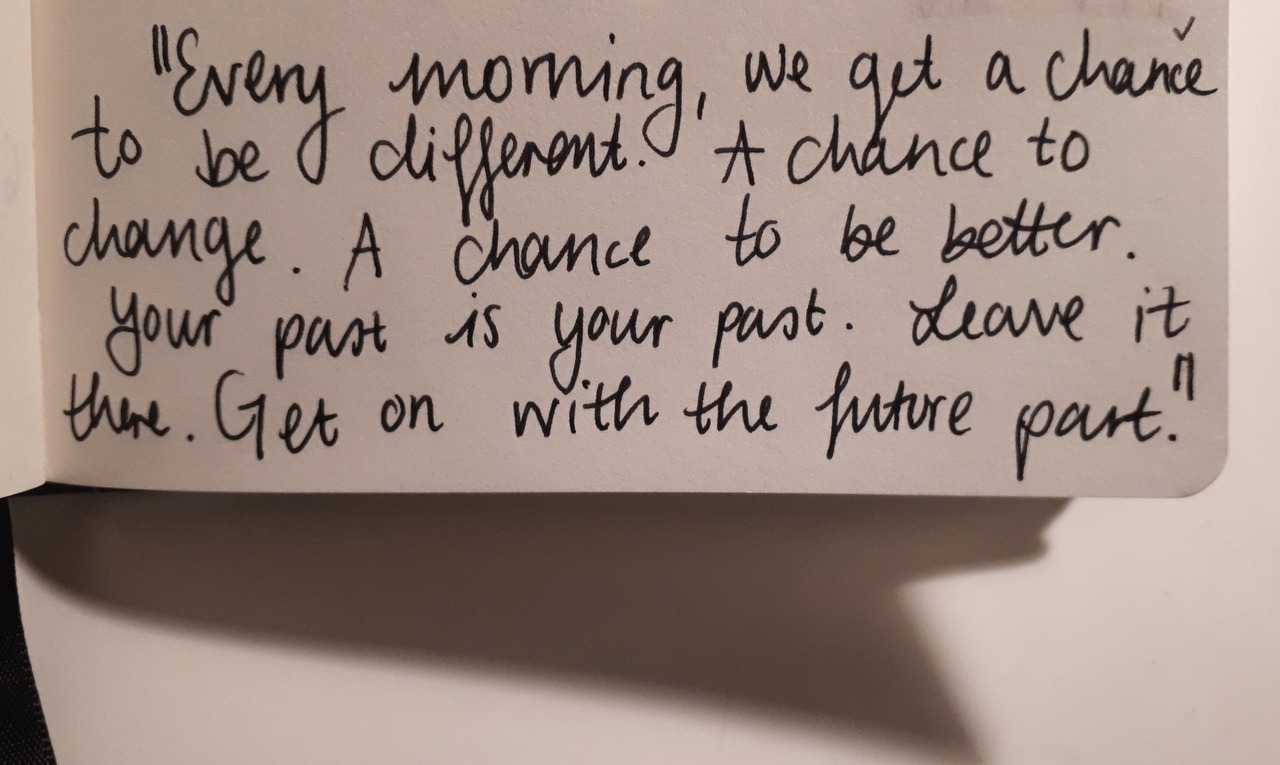 "Every morning, we get a chance
to be different. A chance to
change. A chance to be better.
Your past is your past. Leave it
there. Get on with the future part."